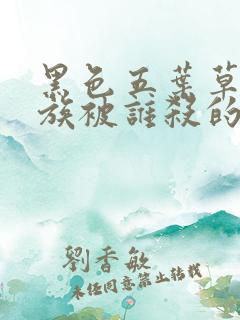 黑色五葉草
族被誰殺的
劉香敏
未經同意禁止轉載